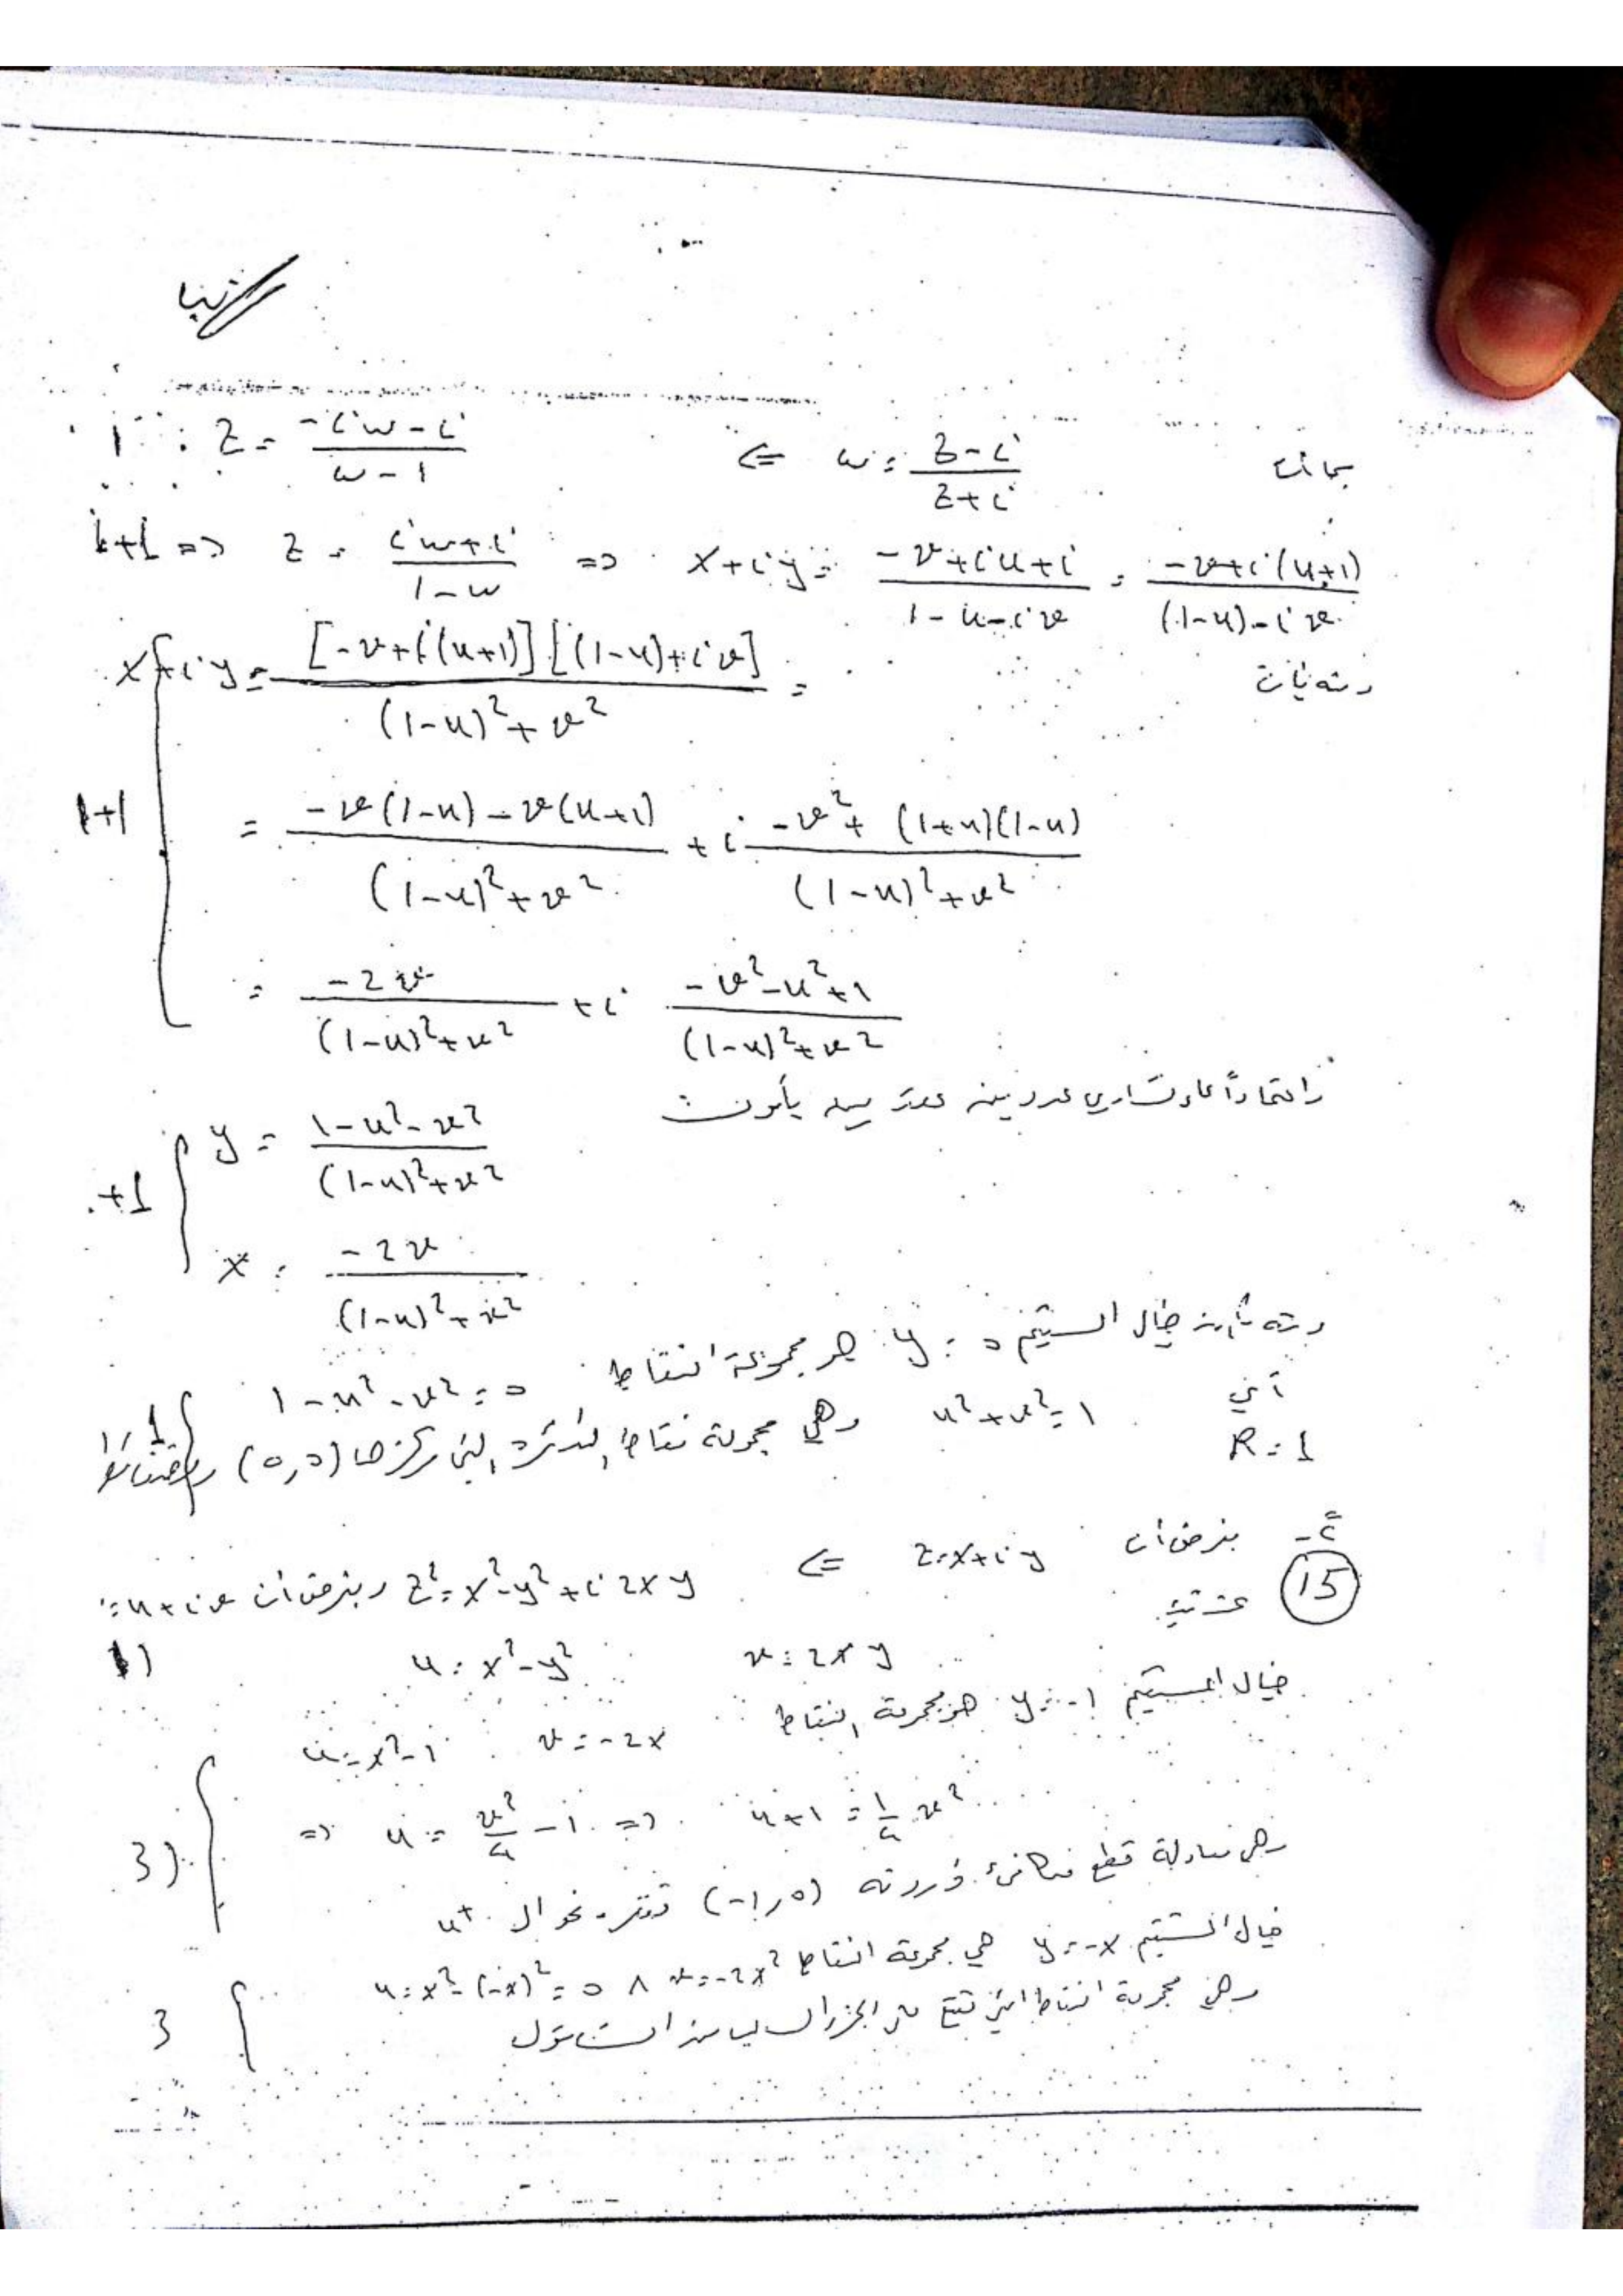 بما أن w = \frac{z-i}{z+i} ⇒ z = \frac{-iw-i}{w-1} : 1
1+1 ⇒ z = \frac{iw+i}{1-w} ⇒ x+iy = \frac{-v+iu+i}{1-u-iv} = \frac{-v+i(u+1)}{(1-u)-iv}
ومنه فإن x+iy = \frac{[-v+i(u+1)][(1-u)+iv]}{(1-u)^2+v^2} =
1+1 = \frac{-v(1-u)-v(u+1)}{(1-u)^2+v^2} + i \frac{-v^2+(1+u)(1-u)}{(1-u)^2+v^2}
= \frac{-2v}{(1-u)^2+v^2} + i \frac{-v^2-u^2+1}{(1-u)^2+v^2}
اعتماداً على تساوي عددين عقديين
+1 y = \frac{1-u^2-v^2}{(1-u)^2+v^2}
x = \frac{-2v}{(1-u)^2+v^2}
ومنه خيال المستقيم y = 0 هو مجموعة النقاط 1-u^2-v^2 = 0
أي u^2+v^2 = 1 وهي مجموعة نقاط الدائرة التي مركزها (0,0)
R = 1
بفرض أن z = x+iy ⇒ z^2 = x^2-y^2+i2xy وبفرض أن = u+iv
15
عندئذ
1) u = x^2-y^2 v = 2xy
خيال المستقيم y = -1 هو مجموعة النقاط
u = x^2-1 v = -2x
3) ⇒ u = \frac{v^2}{4} -1 ⇒ u+1 = \frac{1}{4} v^2
وهي معادلة قطع مكافئ ذروته (-1,0) نحو الـ u^+
خيال المستقيم y = -x هي مجموعة النقاط u = x^2-(-x)^2 = 0 ∧ v = -2x^2
3 وهي مجموعة النقاط التي تقع على الجزء السالب من